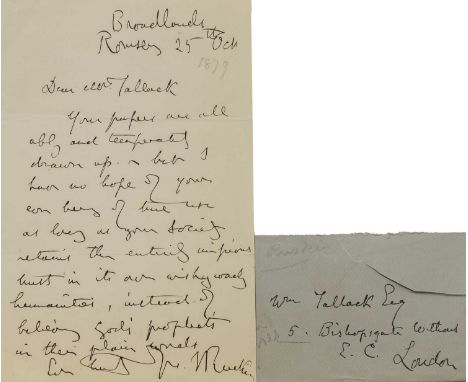 Broadlands
Romsey 25th Oct
1879
Dear Mr Tallack
Your papers are all
ably and temperately
drawn up - but I
have no hope of your
ever being of true use
as long as your Society
retains the entirely impious
trust in its own wishywashy
humanities, instead of
believing God's prophets
in their plain words
Ever truly yrs. J Ruskin
Ruskin
Wm Tallack Esq
5. Bishopsgate Without
E. C.
London